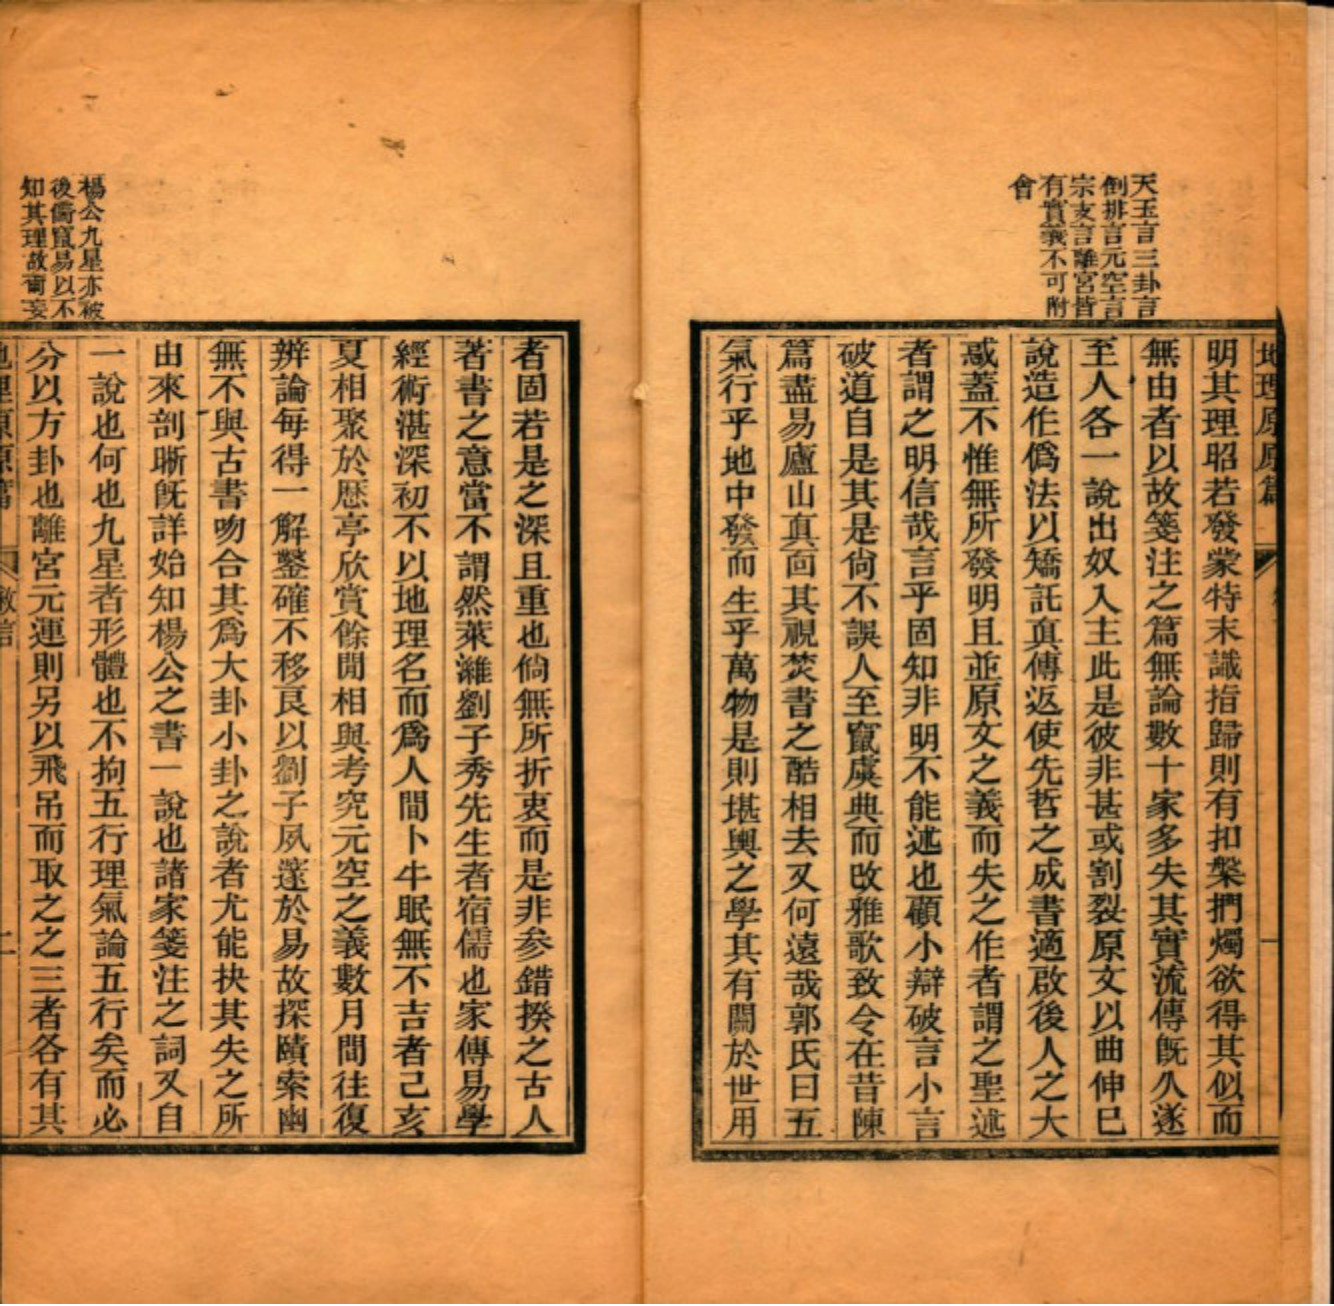 天玉言三卦言
倒排言元空言
宗支言離宮皆
有實義不可附
會
地理原原篇
一
明其理昭若發蒙特末識指歸則有扣槃捫燭欲得其似而
無由者以故箋注之篇無論數十家多失其實流傳旣久遂
至人各一說出奴入主此是彼非甚或割裂原文以曲伸巳
說造作僞法以矯託眞傳返使先哲之成書適啟後人之大
惑蓋不惟無所發明且並原文之義而失之作者謂之聖述
者謂之明信哉言乎固知非明不能述也顧小辯破言小言
破道自是其是尙不誤人至竄虞典而改雅歌致令在昔陳
篇盡易廬山眞面其視焚書之酷相去又何遠哉郭氏曰五
氣行乎地中發而生乎萬物是則堪輿之學其有關於世用
楊公九星亦被
後儒竄易以不
知其理故爾妄
者固若是之深且重也倘無所折衷而是非參錯揆之古人
著書之意當不謂然萊濰劉子秀先生者宿儒也家傳易學
經術湛深初不以地理名而爲人間卜牛眠無不吉者己亥
夏相聚於歷亭欣賞餘閒相與考究元空之義數月間往復
辨論每得一解鑿確不移良以劉子夙邃於易故探賾索幽
無不與古書吻合其爲大卦小卦之說者尤能抉其失之所
由來剖晰旣詳始知楊公之書一說也諸家箋注之詞又自
一說也何也九星者形體也不拘五行理氣論五行矣而必
分以方卦也離宮元運則另以飛吊而取之之三者各有其
地理原原篇
敘言
二